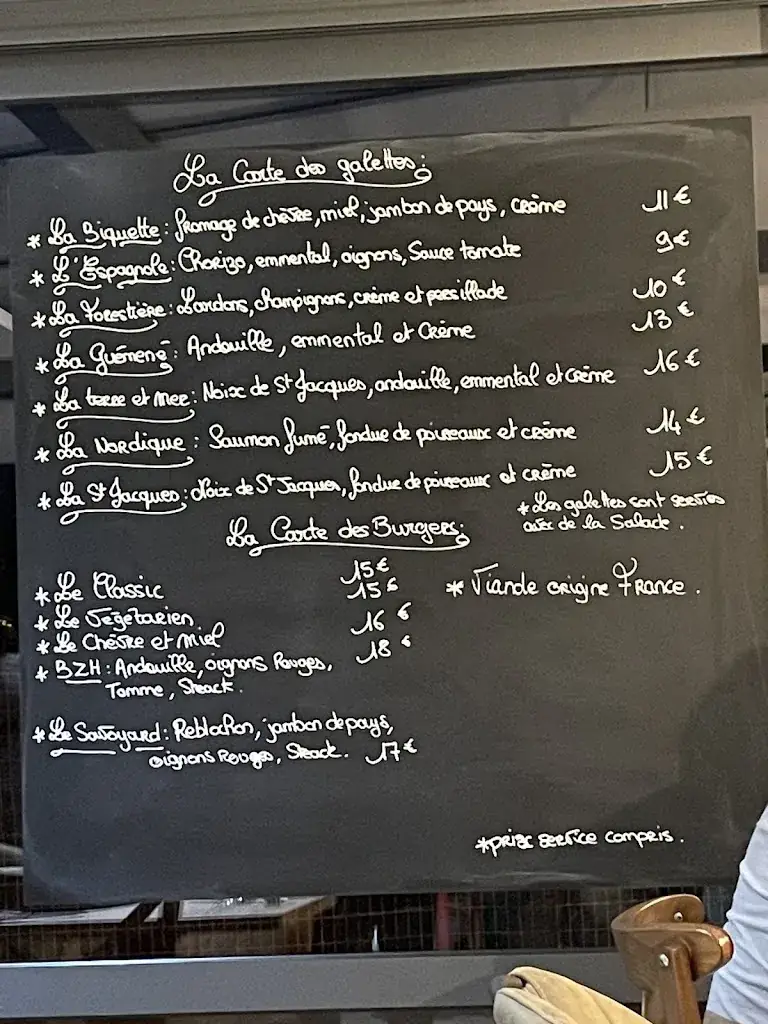 La Carte des galettes :
* La Biquette : fromage de chèvre, miel, jambon de pays, crème 11 €
* L'Espagnole : Chorizo, emmental, oignons, Sauce tomate 9 €
* La Forestière : Lardons, champignons, crème et persillade 10 €
* La Guémené : Andouille, emmental et Crème 13 €
* La terre et Mer : Noix de St Jacques, andouille, emmental et crème 16 €
* La Nordique : Saumon fumé, fondue de poireaux et crème 14 €
* La St Jacques : Noix de St Jacques, fondue de poireaux et crème 15 €
* Les galettes sont servies
avec de la Salade.
La Carte des Burgers :
* Le Classic 15 €
* Le Végétarien 15 €
* Le Chèvre et Miel 16 €
* BZH : Andouille, oignons Rouges, 18 €
Tomme, Steack.
* Le Savoyard : Reblochon, jambon de pays,
oignons Rouges, Steack. 17 €
* Viande origine France.
* prix service compris.